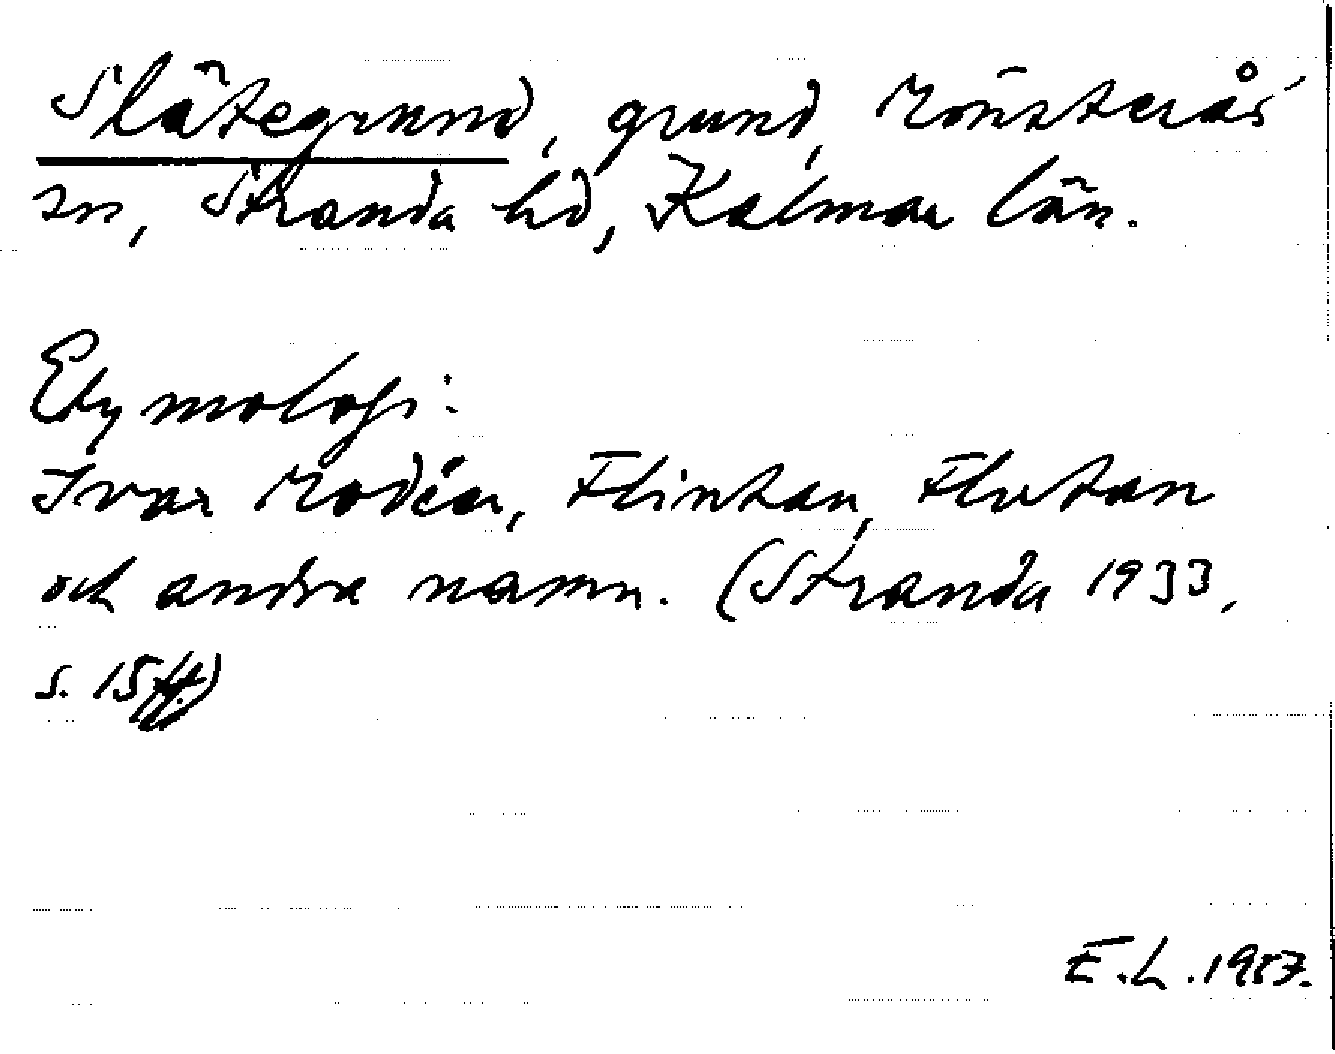 Slätegrund, grund, Mönsterås
sn, Stranda hd, Kalmar län.
Etymologi:
Ivar Modéer, Flintan, Flutan
och andra namn. (Stranda 1933,
s. 15ff.)
E.L. 1957.